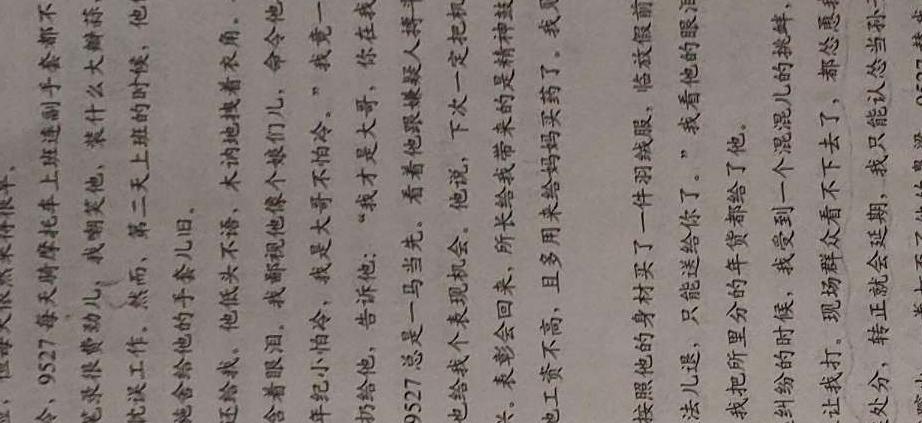 但每天依然来得很早。
令，9527 每天骑摩托车上班连副手套都不
笔录很费劲儿，我嘲笑他，装什么大瓣蒜，
忱误工作。然而，第二天上班的时候，他
施舍给他的手套儿旧。
还给我。他低头不语，木讷地拽着衣角。
含着眼泪。我鄙视他像个娘们儿，命令他
年纪小怕冷，我是大哥不怕冷。”我竟一
扔给他，告诉他：“我才是大哥，你在我
9527 总是一马当先。看着他跟嫌疑人搏
也给我个表现机会。他说，下次一定把机
兴。表彰会回来，所长给我带来的是精神鼓
他工资不高，且多用来给妈妈买药了。我
按照他的身材买了一件羽绒服，临放假前
法儿退，只能送给你了。”我看他的眼
我把所里分的年货都给了他。
纠纷的时候，我受到一个混混儿的挑衅，
让我打。现场群众看不下去了，都怂恿我
处分，转正就会延期，我只能认怂当孙